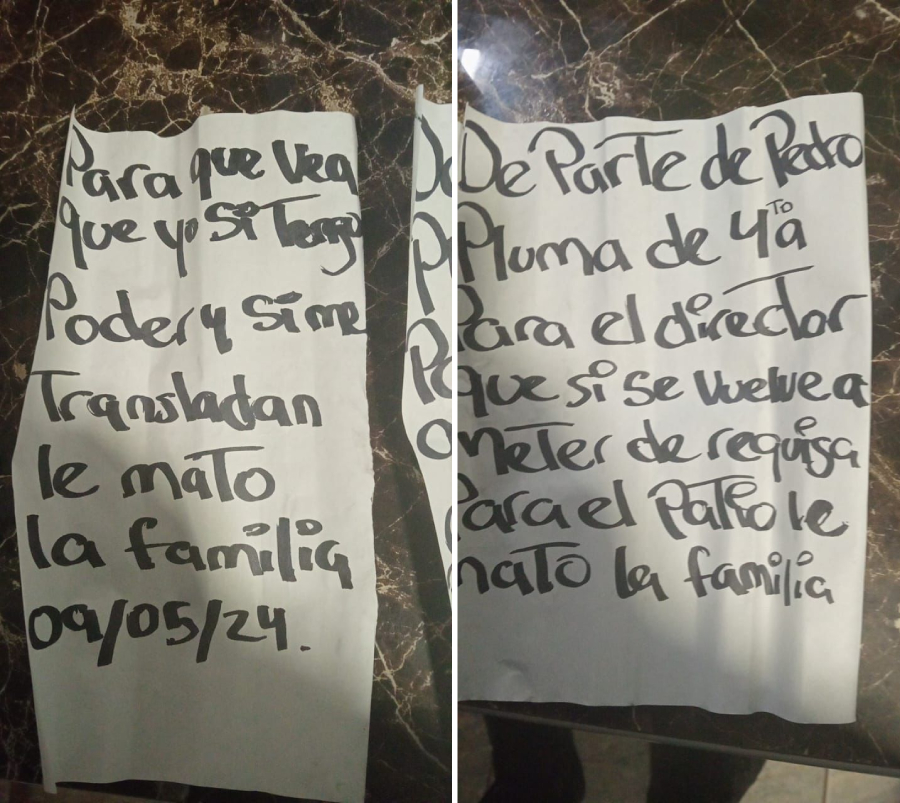 Para que Vea
que yo Si Tengo
Poder y Si me
Transladan
le mato
la familia
09/05/24.
De Parte de Pedro
Pluma de 4To a
Para el director
que si se vuelve a
meter de requisa
Para el Patio le
mato la familia